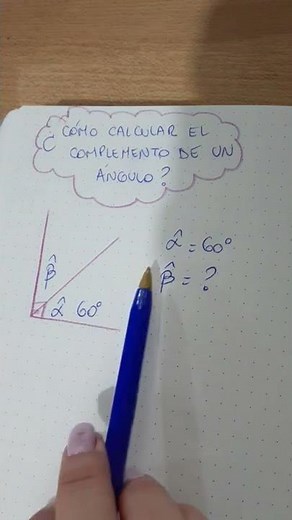 ¿CÓMO CALCULAR EL
COMPLEMENTO DE UN
ÁNGULO?
β̂
α̂ 60°
α̂ = 60°
β̂ = ?